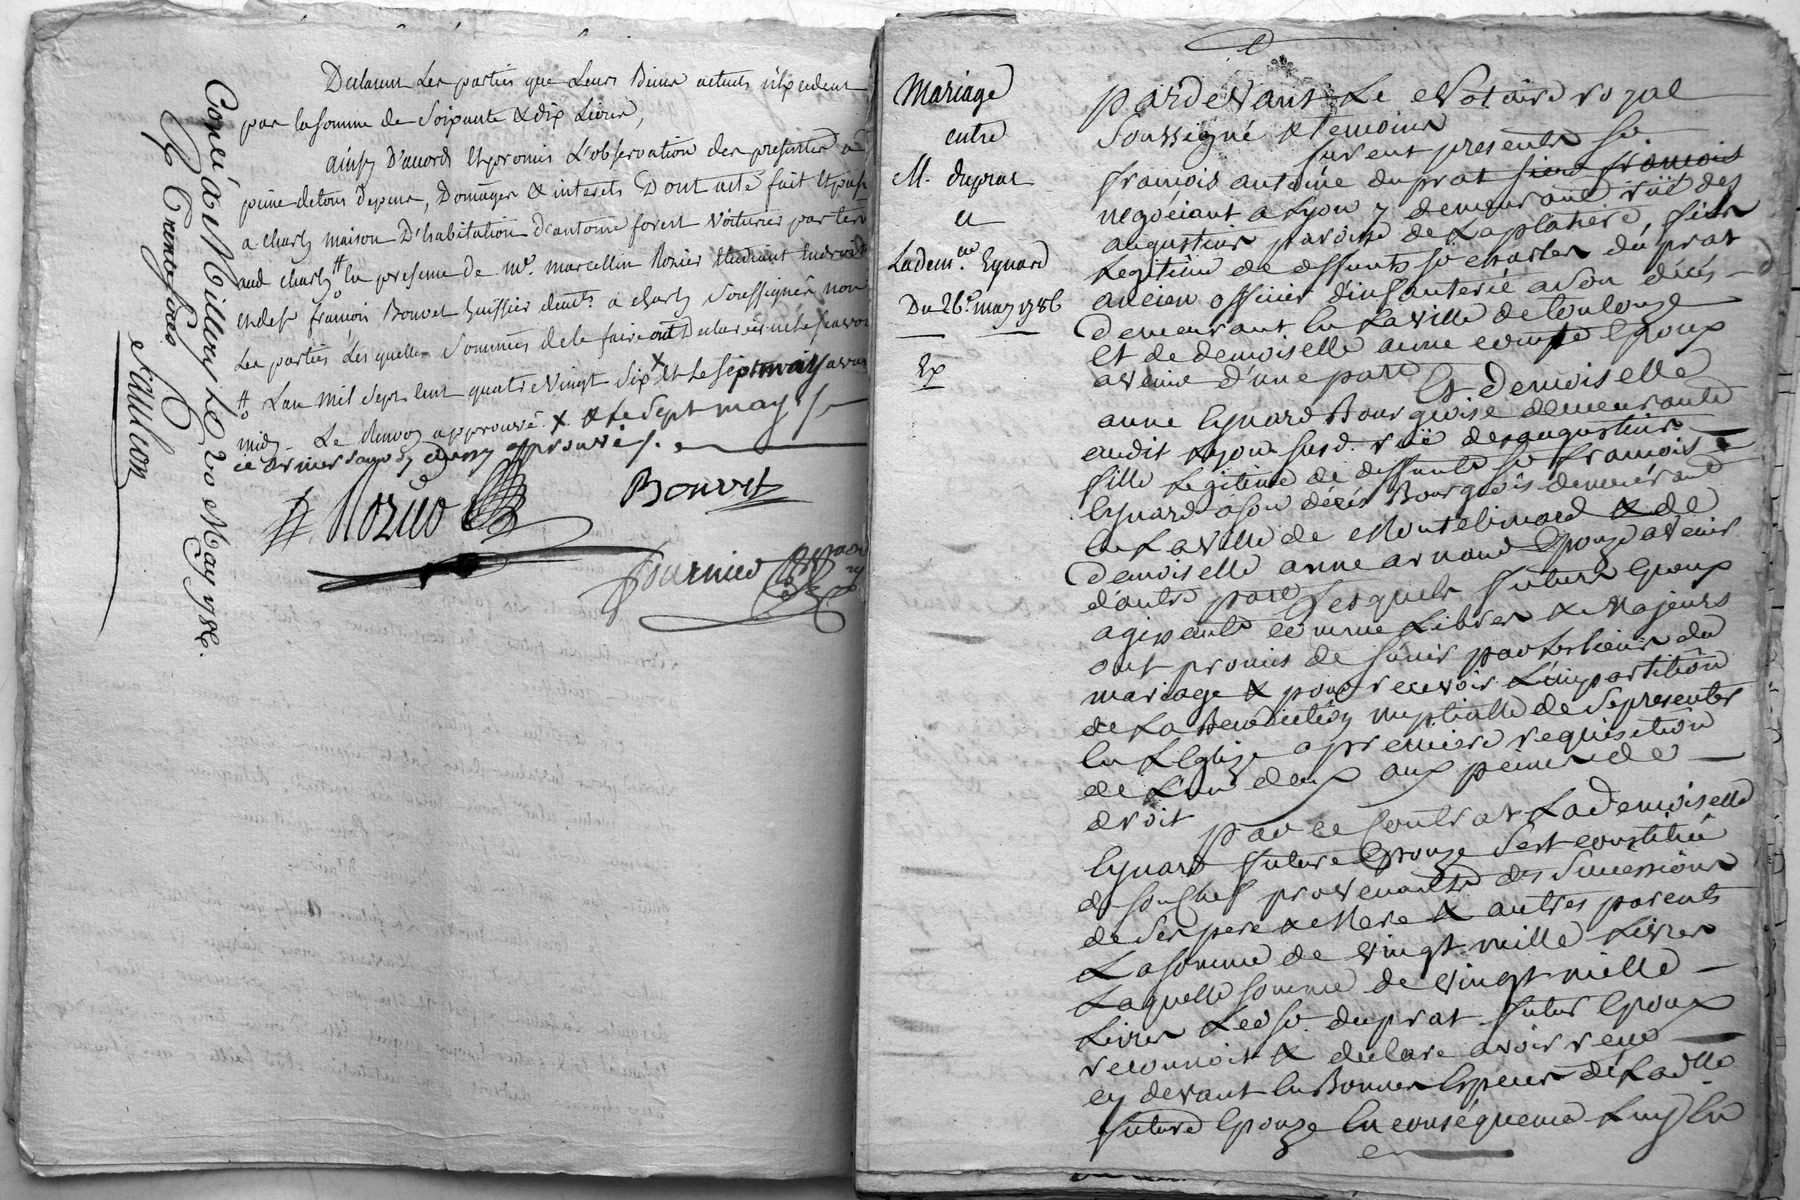 Declarent Les parties que Leurs Biens actuels n'Excedent
pas la somme de Soixante & dix Livres,
ainsy D'accord Et promis L'observation des presentes à
peine de tous Depens, Domages & interets Dont acte fait Et passé
a Charly maison D'habitation d'antoine forest Voiturier par terre
aud Charly # En presence de Me. marcellin Rozier
françois Bouvet huissier demt. a Charly Soussignés non
Les parties Lesquelles Sommées de le faire ont Declaré ne le Scavoir
# L'an Mil Sept Cent quatre Vingt Six X Et Le Sept may avant
midy. Le Renvoy approuvé. X & le Sept may
ce dernier renvoy aussy approuvé
Rozier
Bouvet
Fournier
Con.lé à Millery Le 20 May 1786.
Mariage
entre
M. duprat
et
Lade.lle Eynard
Du 26 may 1786
Ex
pardevant Le Notaire royal
Soussigné & temoins
furent presents Sr
françois antoine duprat sieur françois
negociant a Lyon y demeurant ruë des
augustins paroisse de Laplatiere, fils
Legitime de deffunts Sr charles duprat
ancien officier d'infanterie a son décés
demeurant En La ville de toulouze
Et de demoiselle anne comte Epoux
avenir d'une part Et demoiselle
anne Eynard Bourgeoise demeurante
audit Lyon susd. ruë des augustins
fille Legitime de deffunts Sr françois
Eynard a son décés Bourgeois demeurant
En La ville de Montelimard & de
demoiselle anne arnaud Epouze avenir
d'autre part Lesquels futurs Epoux
agissants comme Libres & Majeurs
ont promis de s'unir par Les Liens du
mariage & pour recevoir L'impartition
de La Benediction nuptialle de Se presenter
En L'Eglize a premiere requisition
de L'un deux aux peines de
droit
par ce Contrat La Demoiselle
Eynard future Epouze S'est constitué
de son Chef provenants des Successions
de Ses pere & Mere & autres parents
La somme de vingt mille Livres
Laquelle somme de vingt mille
Livres Led Sr. duprat futur Epoux
reconnoit & declare avoir reçu
cy devant En Bonnes Especes de Ladlle
future Epouze En conséquence Luy En